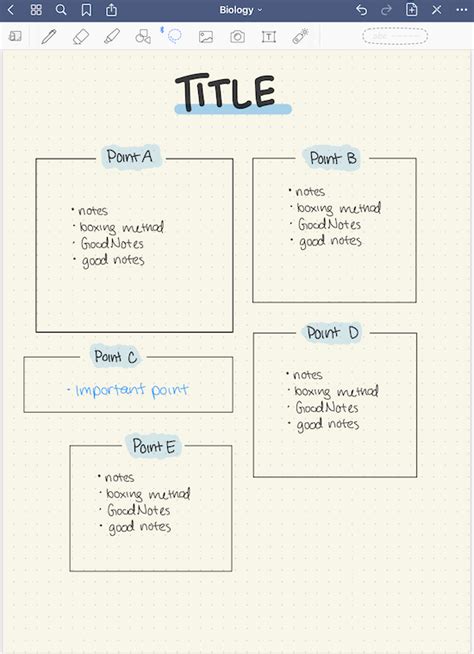 Biology
TITLE
Point A
• notes
• boxing method
• GoodNotes
• good notes
Point B
• notes
• boxing method
• GoodNotes
• good notes
Point C
• Important point
Point D
• notes
• boxing method
• GoodNotes
• good notes
Point E
• notes
• boxing method
• GoodNotes
• good notes